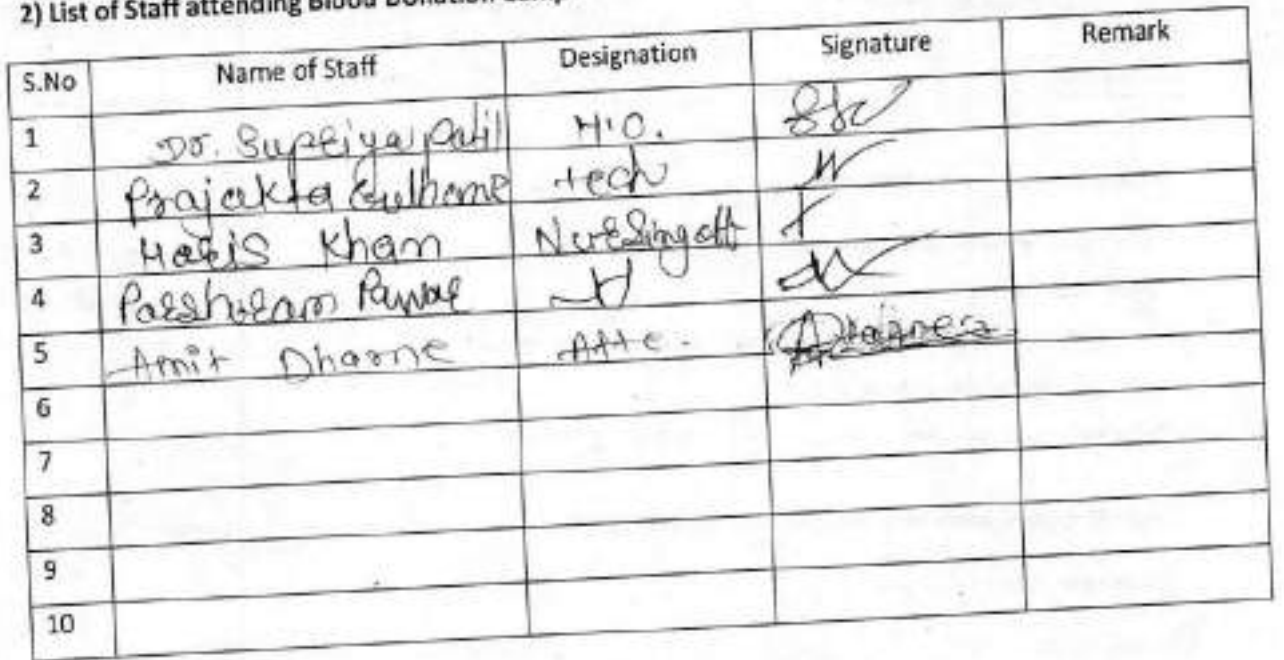 2) List of Staff attending Blood Donation Camp
S.No Name of Staff Designation Signature Remark
1 Dr. Supriya Patil M.O.
2 Prajakta Gulhane tech
3 Haris Khan Nursing att
4 Parshuram Pawar
5 Amit Dharne Atte.
6
7
8
9
10